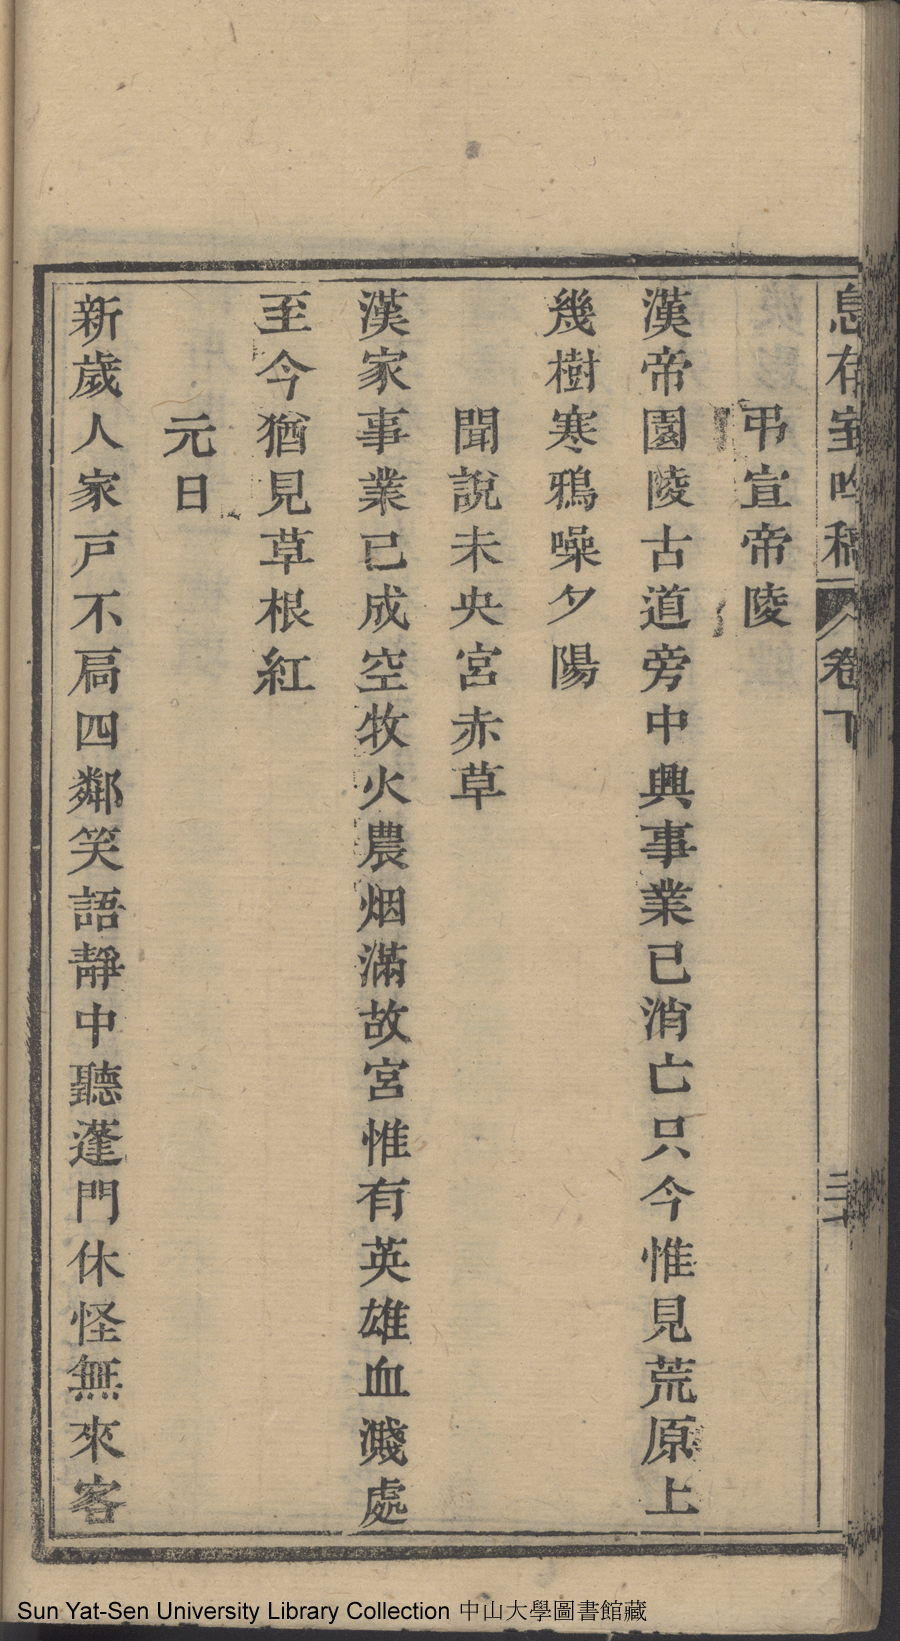 息存室吟稿 卷下
弔宣帝陵
漢帝園陵古道旁中興事業已消亡只今惟見荒原上
幾樹寒鴉噪夕陽
聞說未央宮赤草
漢家事業已成空牧火農烟滿故宮惟有英雄血濺處
至今猶見草根紅
元日
新歲人家戸不扃四鄰笑語靜中聽蓬門休怪無來客
Sun Yat-Sen University Library Collection 中山大學圖書館藏